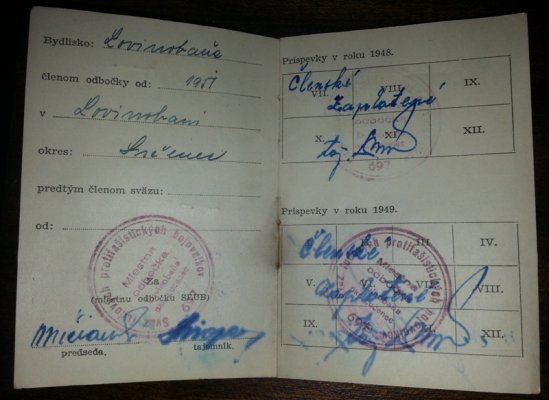 Bydlisko: Lovinobaňa
členom odbočky od: 1951
v Lovinobani
okres: Lučenec
predtým členom sväzu:
od:
Za
(miestnu odbočku SĽUB)
predseda. tajomník.
Sväz ľudových protifašistických bojovníkov
Miestna
odbočka
697
Príspevky v roku 1948.
VII. VIII. IX.
Členské
Zaplatené
X. XII.
697
Príspevky v roku 1949.
III. IV.
Členské
V. VIII.
Zaplatené
IX. XII.
Miestna
odbočka
697